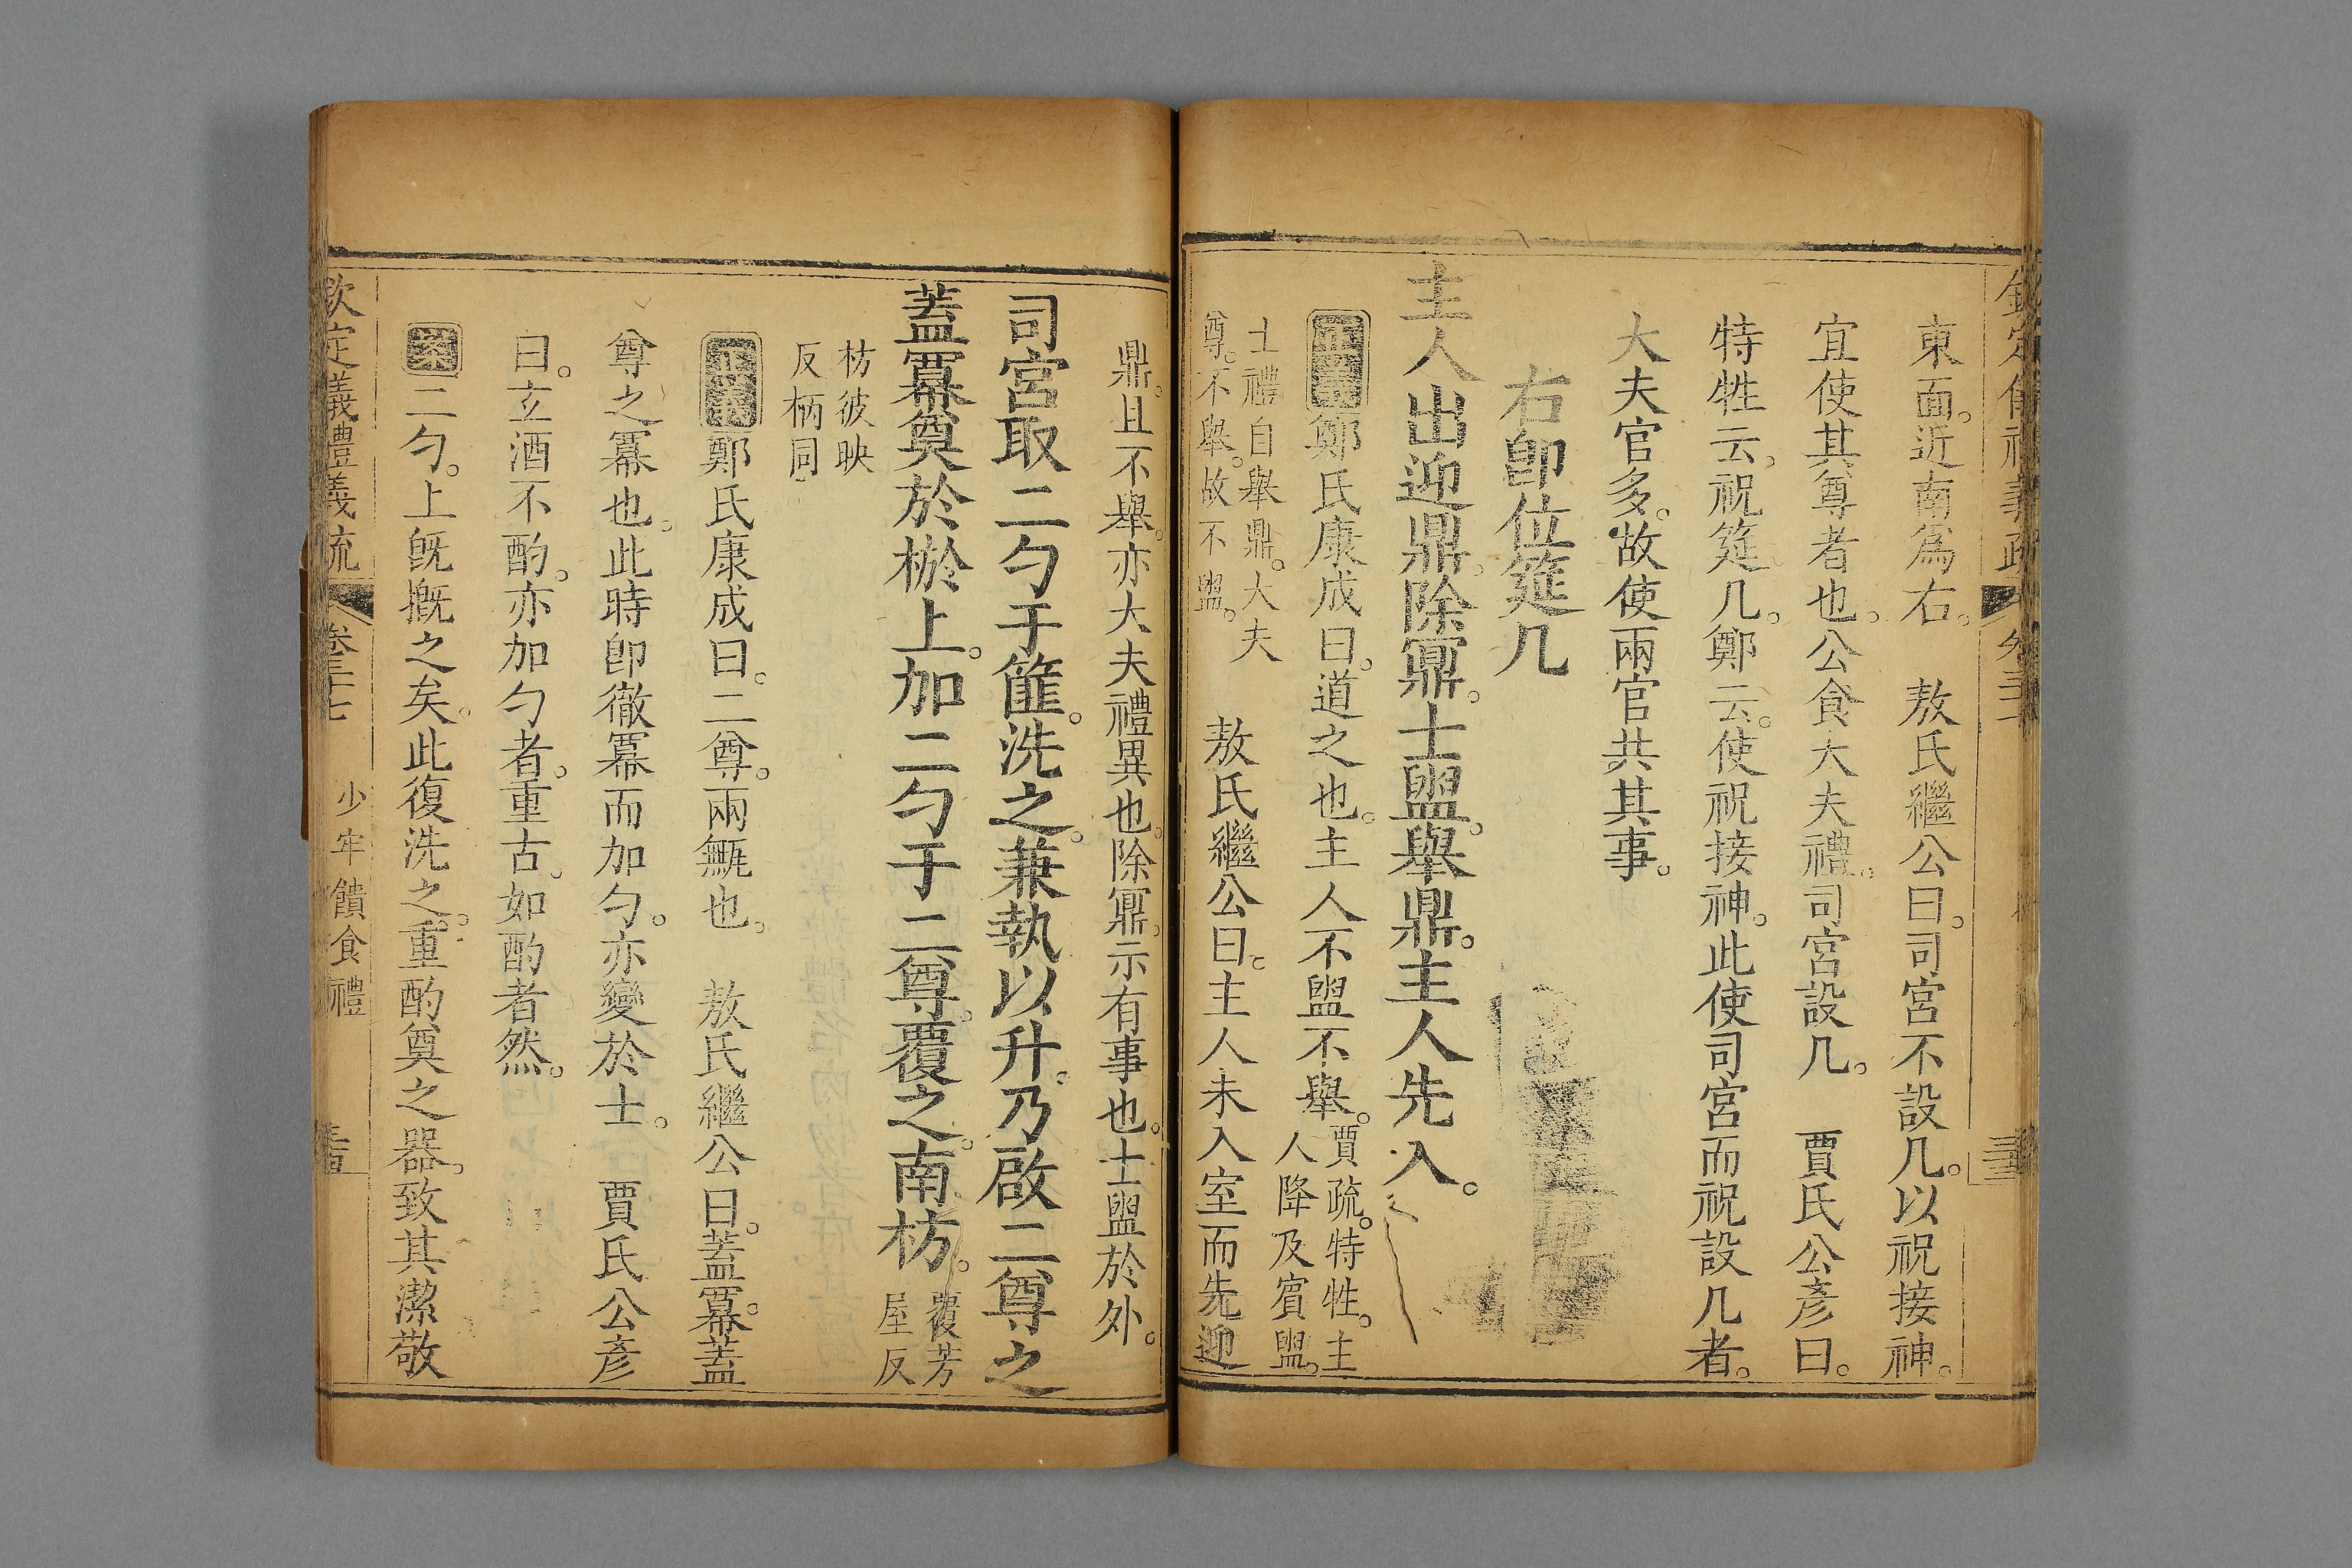 東面。近南爲右。　敖氏繼公曰。司宮不設几。以祝接神。
宜使其尊者也。公食大夫禮。司宮設几。　賈氏公彥曰。
特牲云。祝筵几。鄭云。使祝接神。此使司宮而祝設几者。
大夫官多。故使兩官共其事。
右卽位筵几
主人出迎鼎。除鼏。士盥。舉鼎。主人先入。
正義鄭氏康成曰。道之也。主人不盥不舉。賈疏。特牲。主人降及賓盥。
士禮自舉鼎。大夫尊。不舉。故不盥。　敖氏繼公曰。主人未入室而先迎
鼎。且不舉。亦大夫禮異也。除鼏。示有事也。士盥於外。
司宮取二勺于篚。洗之。兼執以升。乃啟二尊之
蓋冪奠於棜上。加二勺于二尊。覆之。南枋。覆芳屋反
枋彼映反柄同
正義鄭氏康成曰。二尊。兩甒也。　敖氏繼公曰。蓋冪。蓋
尊之冪也。此時卽徹冪而加勺。亦變於士。　賈氏公彥
曰。玄酒不酌。亦加勺者。重古。如酌者然。
案二勺。上旣摡之矣。此復洗之。重酌奠之器。致其潔敬
欽定儀禮義疏　卷三十七　少牢饋食禮